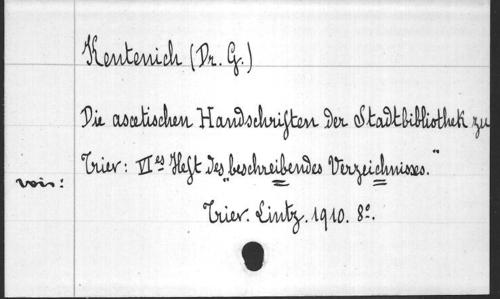 Kentenich (Dr. G.)
Die ascetischen Handschriften der Stadtbibliothek zu
Trier: VI es Heft des „beschreibendes Verzeichnisses.“
voir:
Trier. Lintz. 1910. 8º.